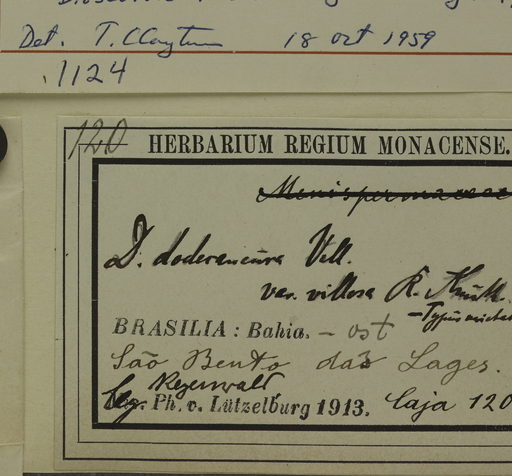 Det. T. Clayton 18 oct 1959
1124
120 HERBARIUM REGIUM MONACENSE.
Menispermaceae
D. doderaneura Vell.
var. villosa R. Knuth.
– Typus varietat
BRASILIA: Bahia. – ost
São Bento das Lages.
Regenwald
leg. Ph. v. Lützelburg 1913. Caja 120